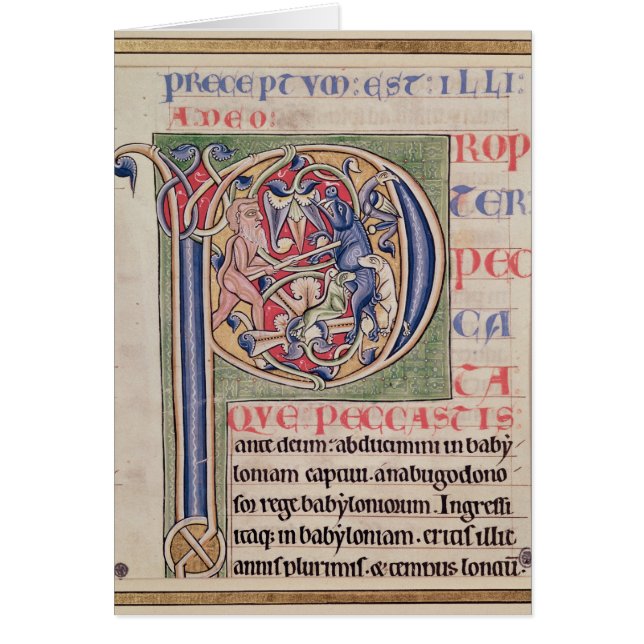 PRECEPTVM : EST : ILLI :
A DEO :
P
ROP
TER :
PEC
CA
TA
QVE PECCASTIS :
ante deum : abducimini in baby
loniam captiui . a nabugodono
sor rege babyloniorum . Ingressi
itaq; in babyloniam . eritis illic
annis plurimis . & tempus longū .